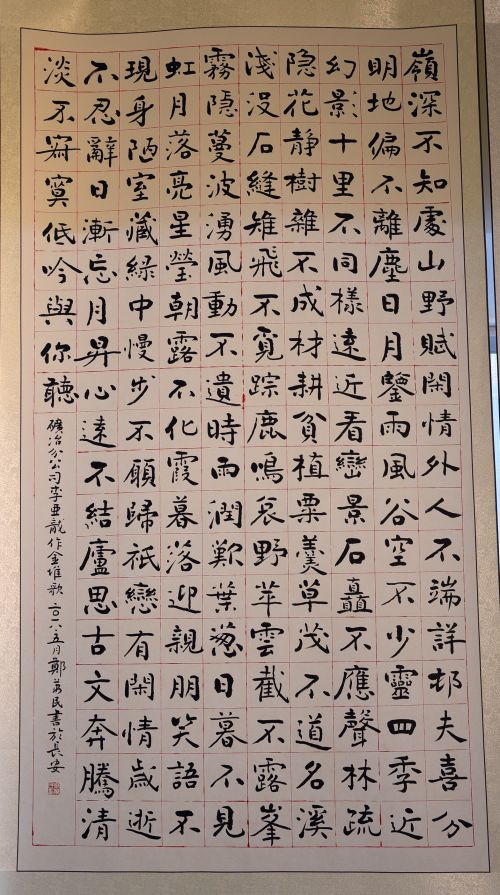 嶺深不知處山野賦閑情外人不端詳邨夫喜分
明地偏不離塵日月鑒雨風谷空不少靈四季近
幻影十里不同樣遠近看巒景石矗不應聲林疏
隐花靜樹雜不成材耕貧植粟羹草茂不道名溪
淺没石縫雉飛不覓踪鹿鳴哀野苹雲截不露峯
霧隱蔓波湧風動不遺時雨潤歎葉葱日暮不見
虹月落亮星瑩朝露不化霞暮落迎親朋笑語不
現身陋室藏綠中慢步不願歸祇戀有閑情歲逝
不忍辭日漸忘月昇心遠不結廬思古文奔騰清
淡不寂寞低吟與你聽
礦冶分公司李亜龍作金堆歌 二〇一八.五月鄭万民書於長安